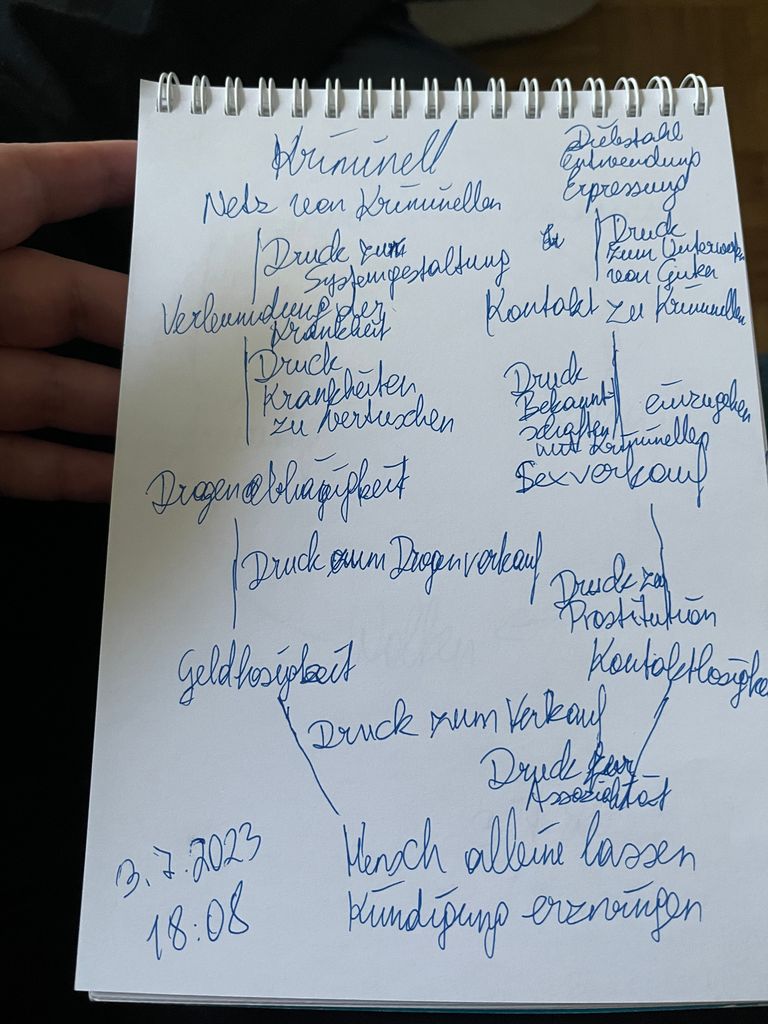 Kriminell
Diebstahl
Entwendung
Erpressung
Netz von Kriminellen
Druck zum
Systemgestaltung
Druck
zum Unterwerfen
von Guten
Verleumdung der
Krankheit
Kontakt zu Kriminellen
Druck
Krankheiten
zu vertuschen
Druck
Bekannt-
schaften einzugehen
mit Kriminellen
Drogenabhägigkeit
Sexverkauf
Druck zum Drogenverkauf
Druck zu
Prostitution
Geldlosigkeit
Kontaktlosigke
Druck zum Verkauf
Druck zur
Assozialität
Mensch alleine lassen
Kündigung erzwingen
3.7.2023
18:08